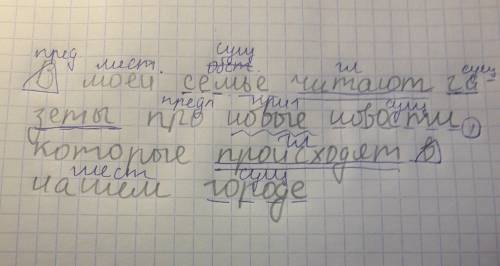 пред мест. сущ гл сущ
В моей семье читают га
предл прил сущ
зеты про новые новости,
гл
которые происходят в
мест сущ
нашем городе